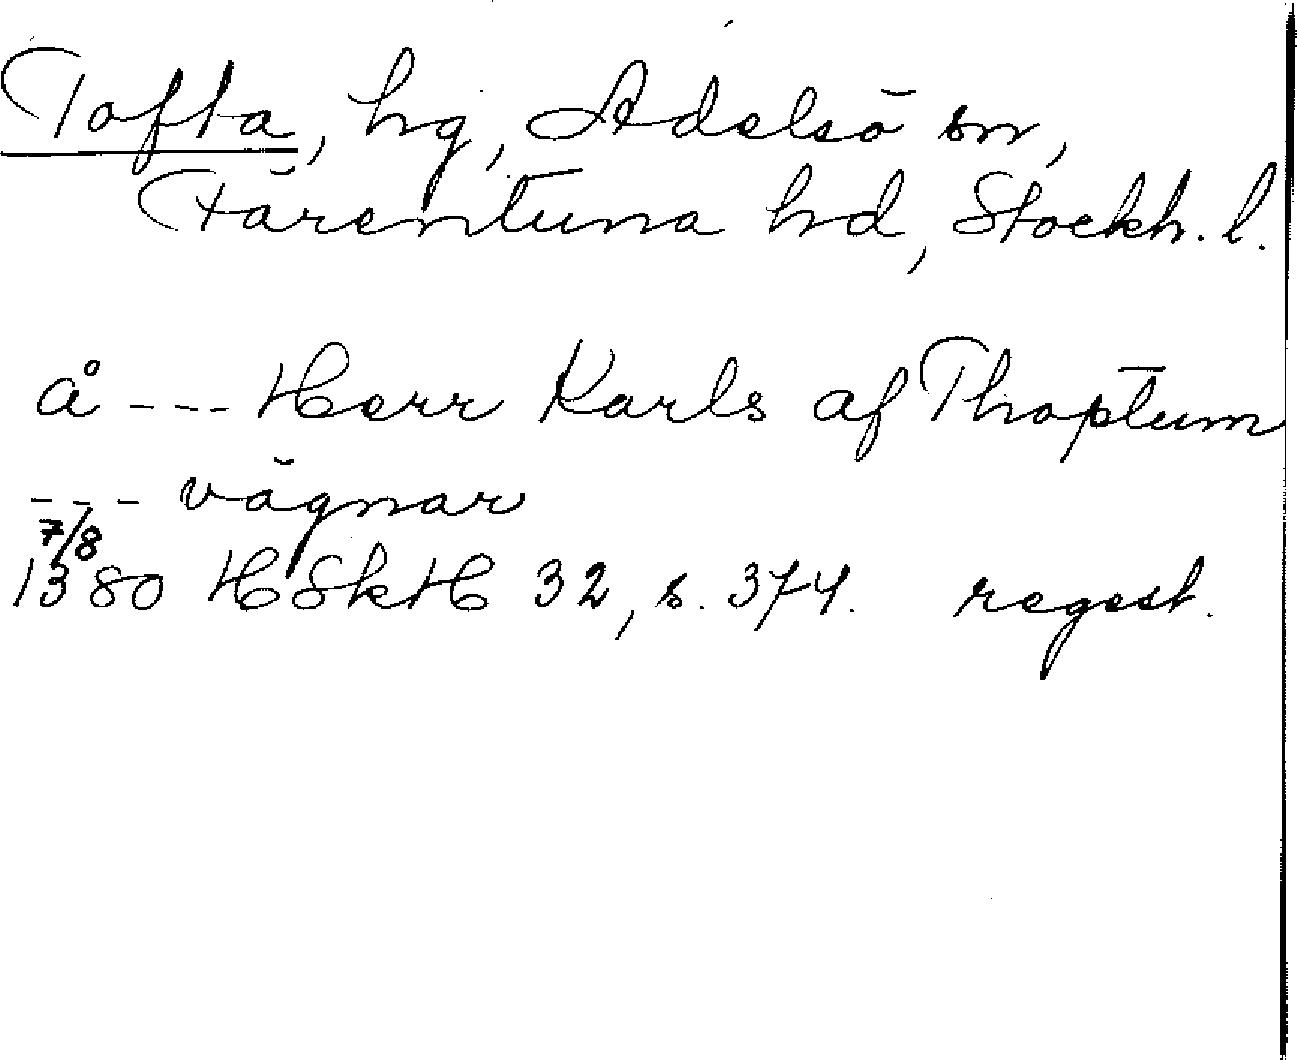 Tofta, hg, Adelsö sn,
Färentuna hd, Stockh. l.
å --- Herr Karls af Thoptum
--- vägnar
7/8
1380 HSkH 32, s. 374. regest.